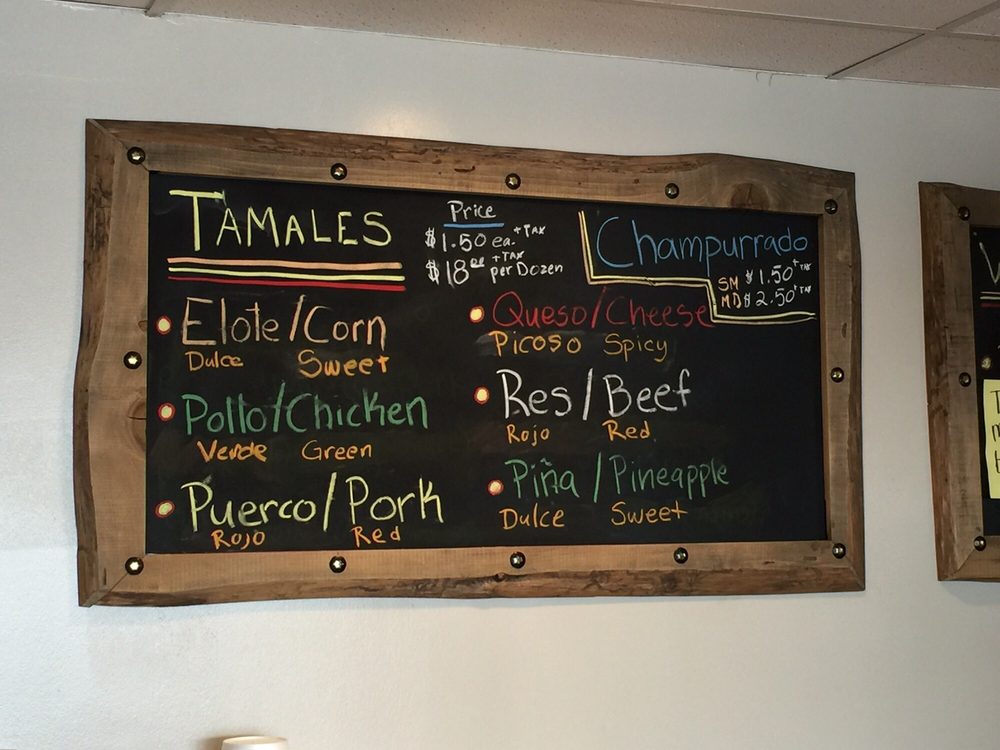 TAMALES
Price
$1.50 ea. +TAX
$18.00 +TAX per Dozen
Champurrado
SM $1.50 +TAX
MD $2.50 +TAX
Elote/Corn
Dulce Sweet
Pollo/Chicken
Verde Green
Puerco/Pork
Rojo Red
Queso/Cheese
Picoso Spicy
Res/Beef
Rojo Red
Piña/Pineapple
Dulce Sweet